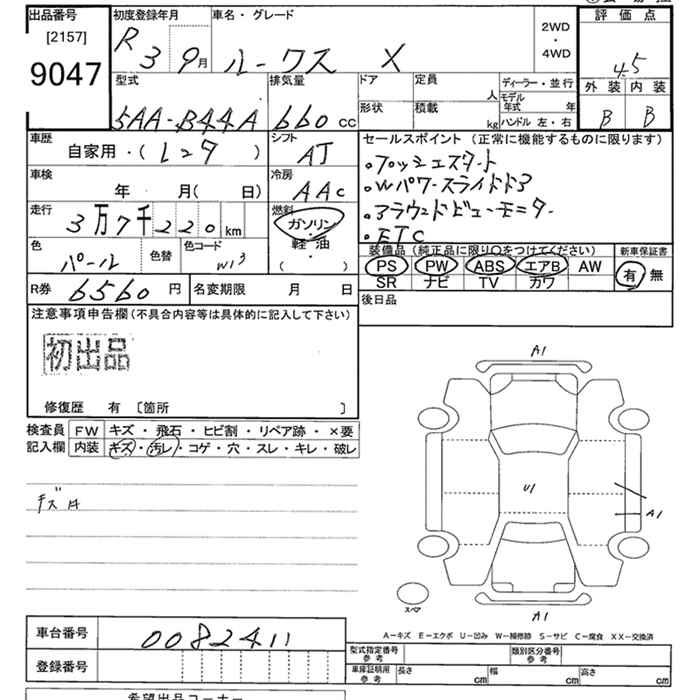 出品番号
[2157]
9047
初度登録年月
R 3 9月
車名・グレード
ルークス X
2WD
・
4WD
評価点
4.5
外装 内装
B B
型式
5AA-B44A
排気量
660cc
ドア
定員
人
形状
積載
kg
ディーラー・並行
モデル年式 年
ハンドル 左・右
車歴
自家用・(レンタ)
シフト
AT
車検
年 月( 日)
冷房
AAC
走行
3万7千220km
燃料
ガソリン・
軽油
・
( )
色
パール
色替
色コード
W13
R券 6560円
名変期限 月 日
セールスポイント(正常に機能するものに限ります)
・プッシュスタート
・Wパワースライドドア
・アラウンドビューモニター
・ETC
装備品(純正品に限り○をつけてください)
PS PW ABS エアB AW
SR ナビ TV カワ
新車保証書
有 無
後日品
注意事項申告欄(不具合内容等は具体的に記入して下さい)
初出品
修復歴 有 [箇所 ]
検査員記入欄
FW キズ・飛石・ヒビ割・リペア跡・×要
内装 キズ・汚レ・コゲ・穴・スレ・キレ・破レ
キズ小
A1
U1
A1
A1
スペア
A-キズ E-エクボ U-凹み W-補修跡 S-サビ C-腐食 XX-交換済
車台番号 0082411
登録番号
型式指定番号
参考
類別区分番号
参考
車庫証明用
参考
長さ cm
幅 cm
高さ cm
希望出品コーナー